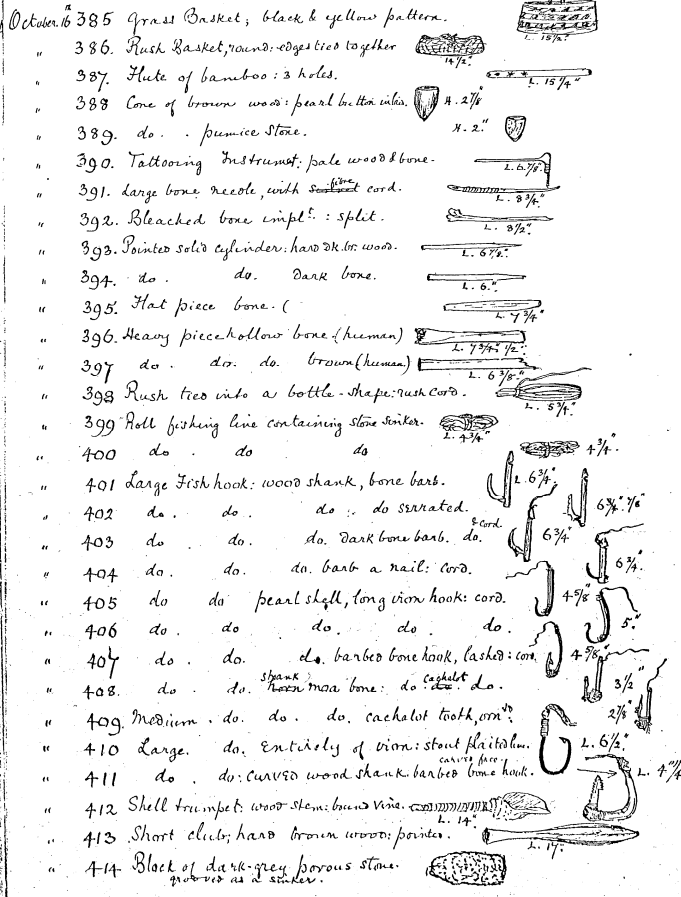 October. 16th 385 Grass Basket; black & yellow pattern. L. 15½"
" 386. Rush Basket, round: edges tied together 14½"
" 387. Flute of bamboo: 3 holes. L. 15¼"
" 388 Cone of brown wood: pearl button inlaid. H. 2⅞"
" 389. do. . pumice stone. H. 2"
" 390. Tattooing Instrumt: pale wood & bone. L. 6⅞"
" 391. Large bone needle, with fibre cord. L. 8¾"
" 392. Bleached bone implt. : split. L. 8½"
" 393. Pointed solid cylinder: hard dk. br. wood. L. 6½"
" 394. do. do. Dark bone. L. 6"
" 395. Flat piece bone. ( L. 7¾"
" 396. Heavy piece hollow bone. (human) L. 7¾" ½"
" 397 do. do. do. brown (human) L. 6⅜"
" 398 Rush tied into a bottle-shape: rush cord. L. 5¾"
" 399 Roll fishing line containing stone sinker. L. 4¾"
" 400 do . do do 4¾"
" 401 Large Fish hook: wood shank, bone barb. L. 6¾"
" 402 do. do. do : do serrated. 6¾" ⅞"
" 403 do. do. do. dark bone barb. do. & cord. 6¾"
" 404 do. do. do. barb a nail: cord. 6¾"
" 405 do do pearl shell, long iron hook: cord. 4⅝"
" 406 do. do do. do. do. 5"
" 407 do. do. do. barbed bone hook, lashed: cord. 4⅝"
" 408. do. do. shank horn moa bone: do cachalot do. do. 3½"
" 409. Medium . do. do. do. cachalot tooth, ornd. 2⅞"
" 410 Large. do. Entirely of iron: stout plaited line. L. 6½"
" 411 do . do: curved wood shank barbed bone hook. carved face L. 4"
" 412 Shell trumpet: wood stem: bound vine. L. 14"
" 413 Short club; hard brown wood: pointed. L. 17"
" 414 Block of dark-grey porous stone.
grooved as a sinker.